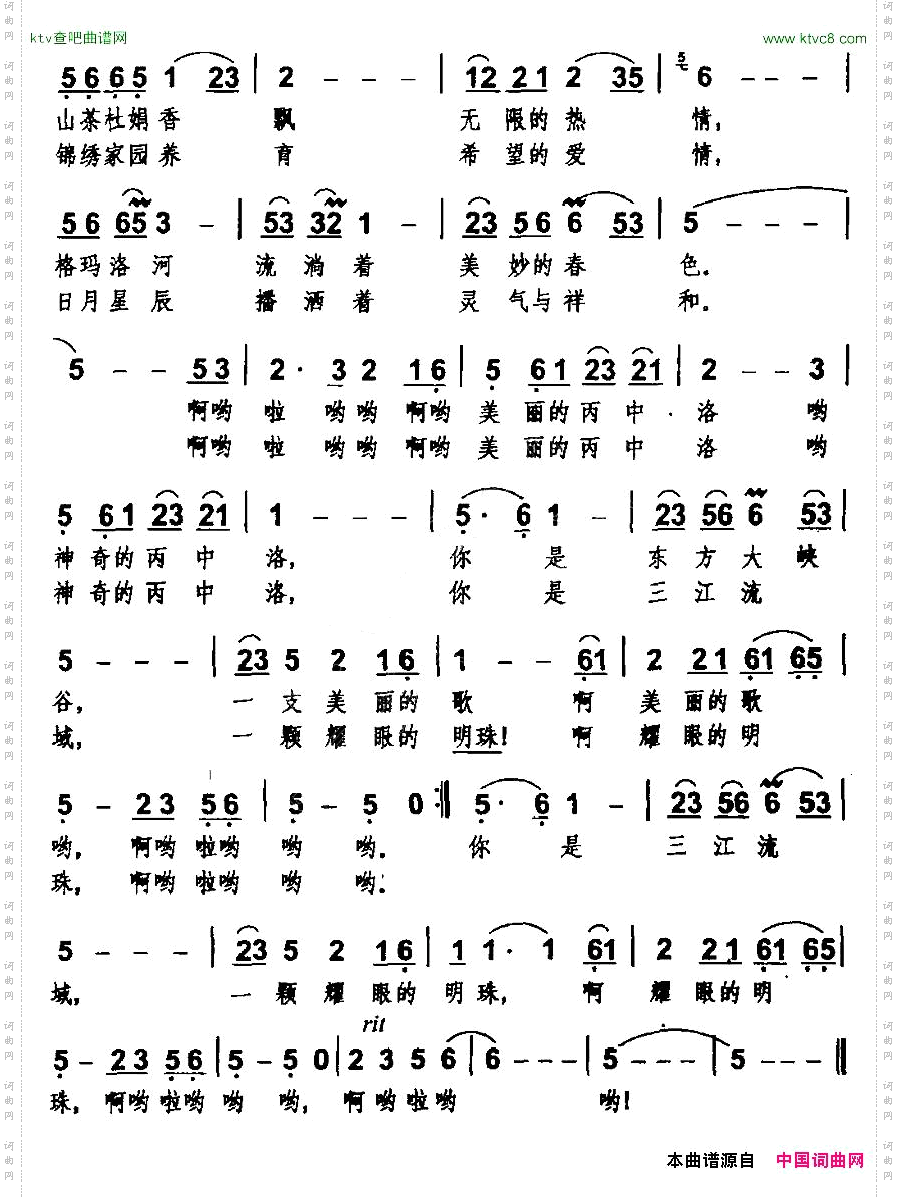 ktv查吧曲谱网 www.ktvc8.com
5 6 6 5 1 23 | 2 - - - | 12 21 2 35 | 6 - - - |
山茶杜娟香 飘 无限的热 情,
锦绣家园养 育 希望的爱 情,
56 65 3 - | 53 32 1 - | 23 56 6 53 | 5 - - - |
格玛洛河 流淌着 美妙的春 色.
日月星辰 播洒着 灵气与祥 和.
5 - - 53 | 2· 32 16 | 5 61 23 21 | 2 - - 3 |
啊哟 啦 哟哟 啊哟 美丽的丙中·洛 哟
啊哟 啦 哟哟 啊哟 美丽的丙中 洛 哟
5 61 23 21 | 1 - - - | 5· 6 1 - | 23 56 6 53 |
神奇的丙中 洛, 你 是 东方大峡
神奇的丙中 洛, 你 是 三江流
5 - - - | 23 5 2 16 | 1 - - 61 | 2 21 61 65 |
谷, 一支美丽的 歌 啊 美丽的歌
域, 一颗耀眼的 明珠! 啊 耀眼的明
5 - 23 56 | 5 - 5 0 :| 5· 6 1 - | 23 56 6 53 |
哟, 啊哟啦哟 哟 哟. 你 是 三江流
珠, 啊哟啦哟 哟 哟.
5 - - - | 23 5 2 16 | 1 1· 1 61 | 2 21 61 65 |
域, 一颗耀眼的 明珠, 啊 耀眼的明
rit
5 - 23 56 | 5 - 5 0 | 2 3 5 6 | 6 - - - | 5 - - - | 5 - - - ||
珠, 啊哟啦哟 哟 哟, 啊哟啦哟 哟!
本曲谱源自 中国词曲网
词曲网